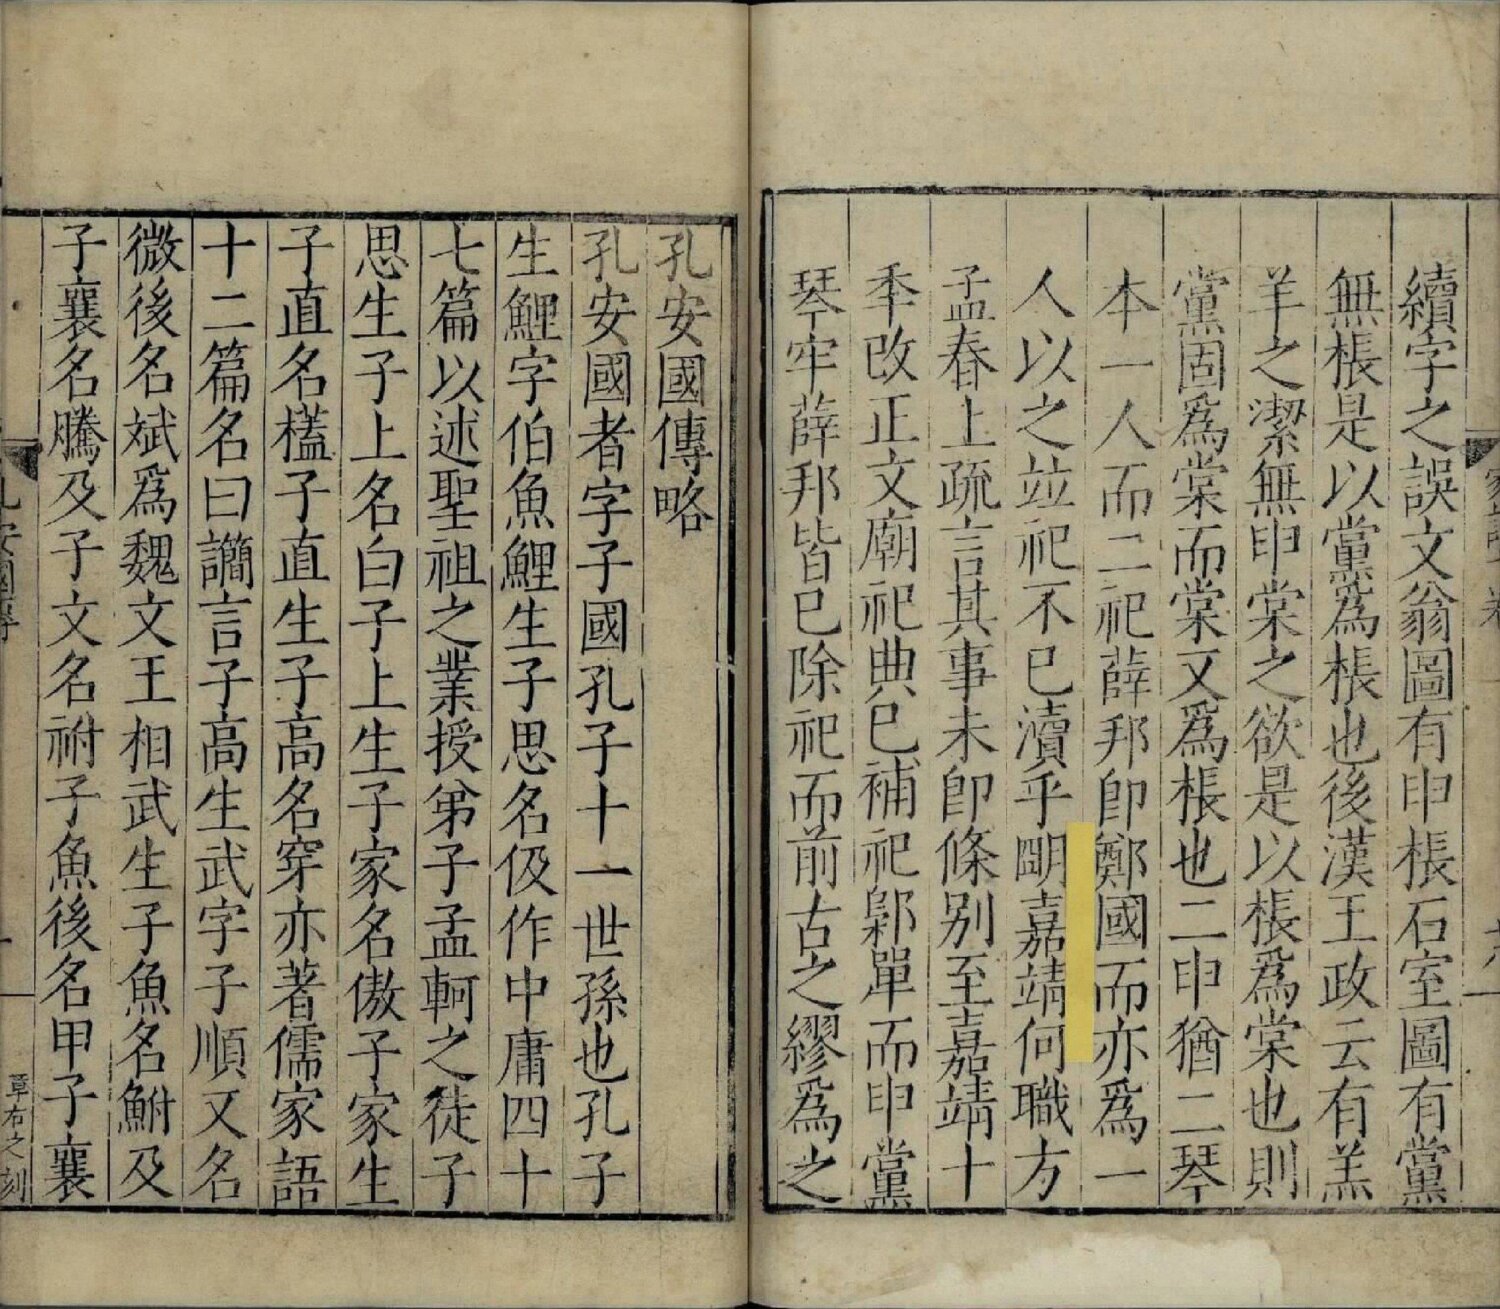 續字之誤文翁圖有申棖石室圖有黨
無棖是以黨爲棖也後漢王政云有羔
羊之潔無申棠之欲是以棖爲棠也則
黨固爲棠而棠又爲棖也二申猶二琴
本一人而二祀薛邦卽鄭國而亦爲一
人以之竝祀不已瀆乎朙嘉靖何職方
孟春上疏言其事未卽條別至嘉靖十
秊改正文廟祀典已補祀鄡單而申黨
琴牢薛邦皆已除祀而前古之繆爲之
孔安國傳略
孔安國者字子國孔子十一世孫也孔子
生鯉字伯魚鯉生子思名伋作中庸四十
七篇以述聖祖之業授弟子孟軻之徒子
思生子上名白子上生子家名傲子家生
子直名榼子直生子高名穿亦著儒家語
十二篇名曰讕言子高生武字子順又名
微後名斌爲魏文王相武生子魚名鮒及
子襄名騰及子文名祔子魚後名甲子襄
孔安國傳
一
章右之刻